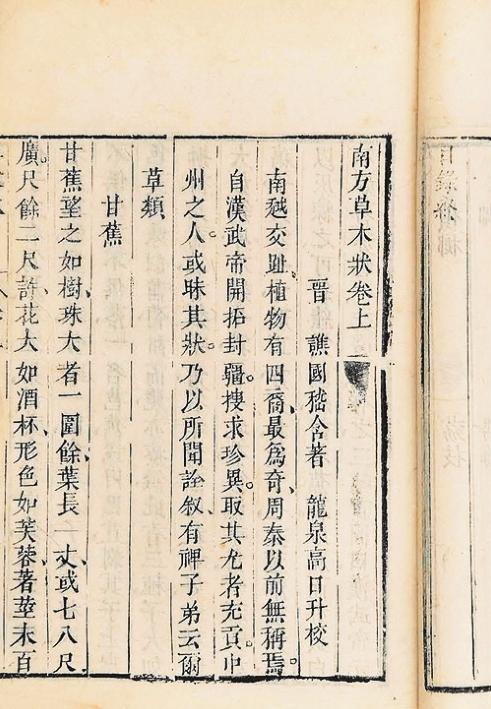 南方草木狀卷上
晉 譙國嵇含著 龍泉高日升校
南越交趾植物有四裔最爲奇周秦以前無稱焉
自漢武帝開拓封疆搜求珍異取其尤者充貢中
州之人或昧其狀乃以所聞詮敘有裨子弟云爾
草類
甘蕉
甘蕉望之如樹珠大者一圍餘葉長一丈或七八尺
廣尺餘二尺許花大如酒杯形色如芙蓉著莖末百